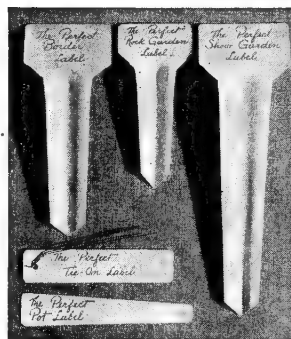 The Perfect
Border
Label.
The Perfect
Rock Garden
Label.
The Perfect
Show Garden
Label.
The Perfect
Tie-On Label
The Perfect
Pot Label